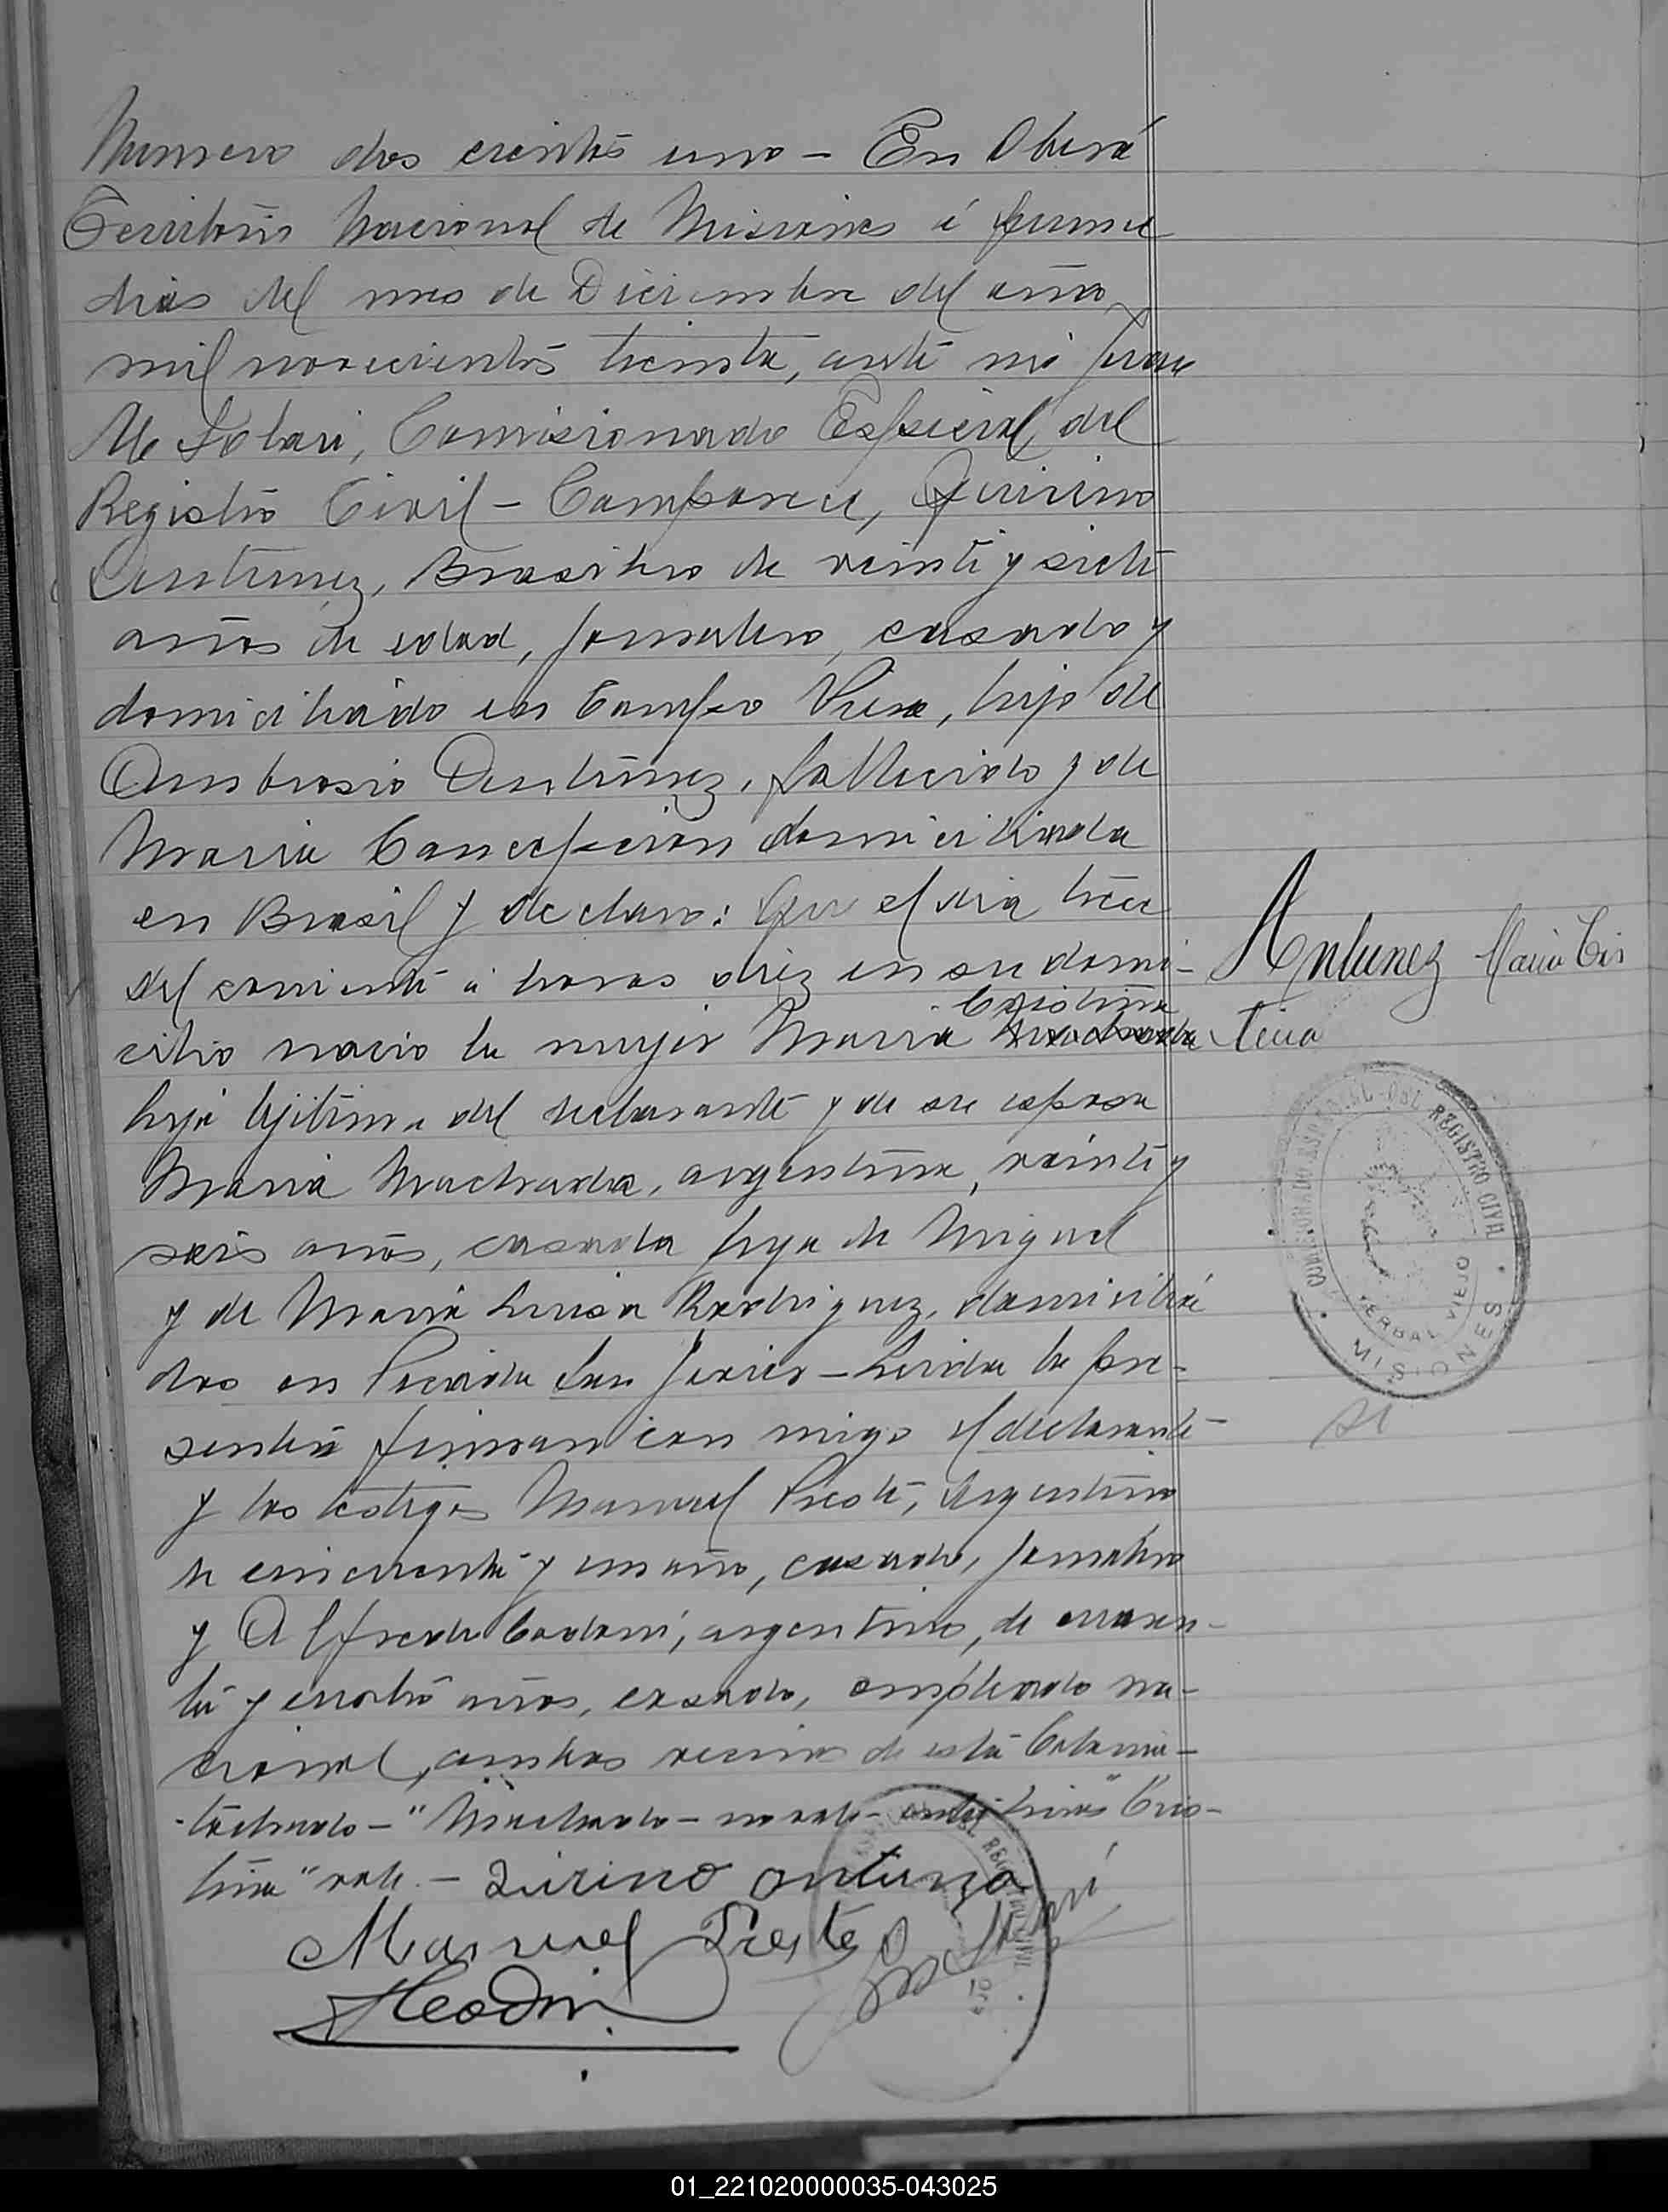 Numero dos cientos uno - En Oberá
Territorio Nacional de Misiones á
dias del mes de Diciembre del año
mil novecientos treinta, ante mi
M Solari, Comisionado Especial del
Registro Civil - Comparece, Quirino
Antunez, Brasilero de veinti y siete
años de edad, jornalero, casado y
domiciliado en Campo Viera, hijo de
Ambrosio Antunez, fallecido y de
Maria Concepcion domiciliada
en Brasil y declaro: Que el dia trece
del corriente á horas diez en su domi-
Antunez Maria Cris
Cristina
cilio nacio la mujer Maria
tina
hija lejitima del declarante y de su esposa
Maria Machado, argentina, veinti y
seis años, casada hija de Miguel
y de Maria Luisa Rodriguez, domicilia
dos en Picada San Javier - Leida la pre-
sente firman con migo el declarante
y los testigos Manuel Prestes, Argentino
de cincuenta y un año, casado, jornalero
y Alfredo Codoni, argentino, de cuaren-
ta y cuatro años, casado, empleado na-
cional, ambos vecinos de esta Colonia -
tachado - "Machado - no vale - entre linea" Cris-
tina" vale. - Quirino Antunez
Manuel Prestes
COMISIONADO ESPECIAL DEL REGISTRO CIVIL
YERBAL VIEJO
MISIONES
01_221020000035-043025